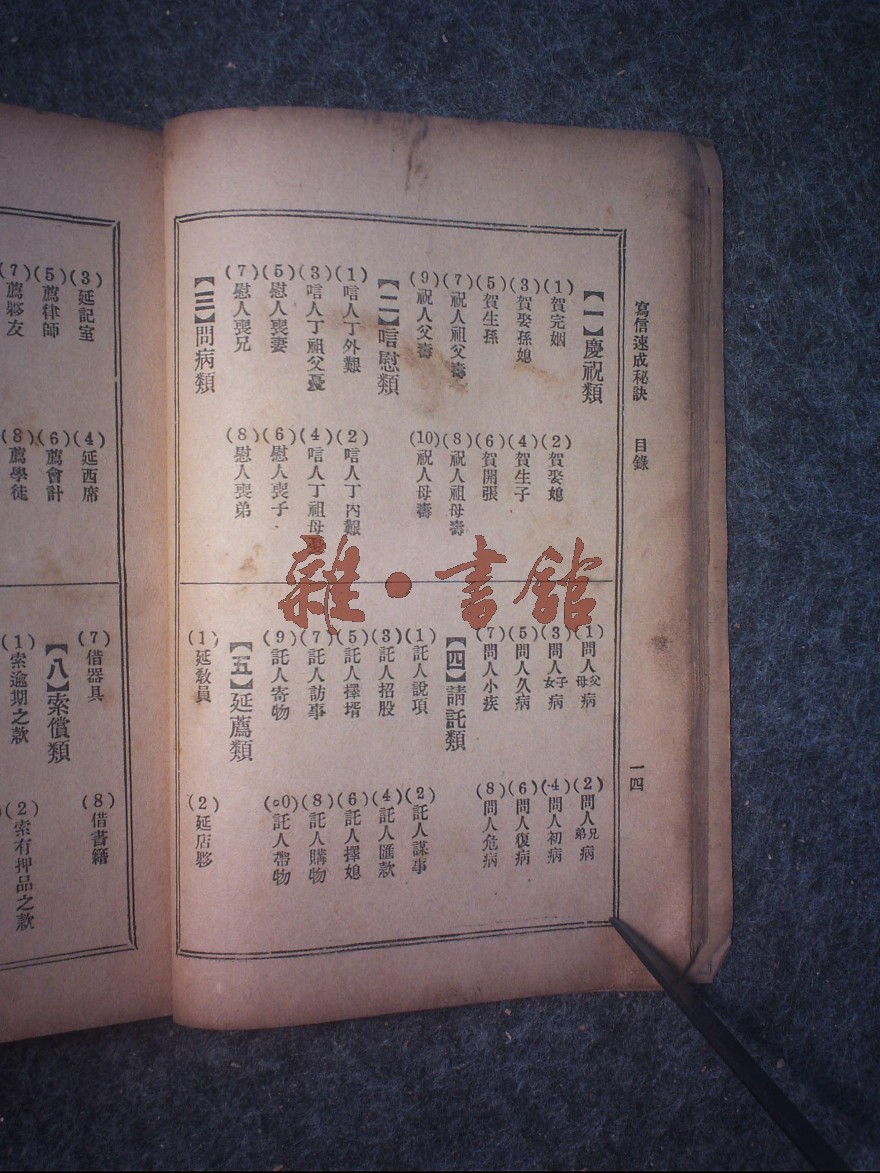 寫信速成秘訣 目錄 一四
【一】慶祝類
(1)賀完姻 (2)賀娶媳
(3)賀娶孫媳 (4)賀生子
(5)賀生孫 (6)賀開張
(7)祝人祖父壽 (8)祝人祖母壽
(9)祝人父壽 (10)祝人母壽
【二】唁慰類
(1)唁人丁外艱 (2)唁人丁內艱
(3)唁人丁祖父憂 (4)唁人丁祖母憂
(5)慰人喪妻 (6)慰人喪子
(7)慰人喪兄 (8)慰人喪弟
【三】問病類
(1)問人父母病 (2)問人兄弟病
(3)問人子女病 (4)問人初病
(5)問人久病 (6)問人復病
(7)問人小疾 (8)問人危病
【四】請託類
(1)託人說項 (2)託人謀事
(3)託人招股 (4)託人匯款
(5)託人擇壻 (6)託人擇媳
(7)託人訪事 (8)託人購物
(9)託人寄物 託人帶物
【五】延薦類
(1)延教員 (2)延店夥
(3)延記室 (4)延西席
(5)薦律師 (6)薦會計
(7)薦夥友 (8)薦學徒
(7)借器具 (8)借書籍
【八】索償類
(1)索逾期之款 (2)索有押品之款
雜·書館